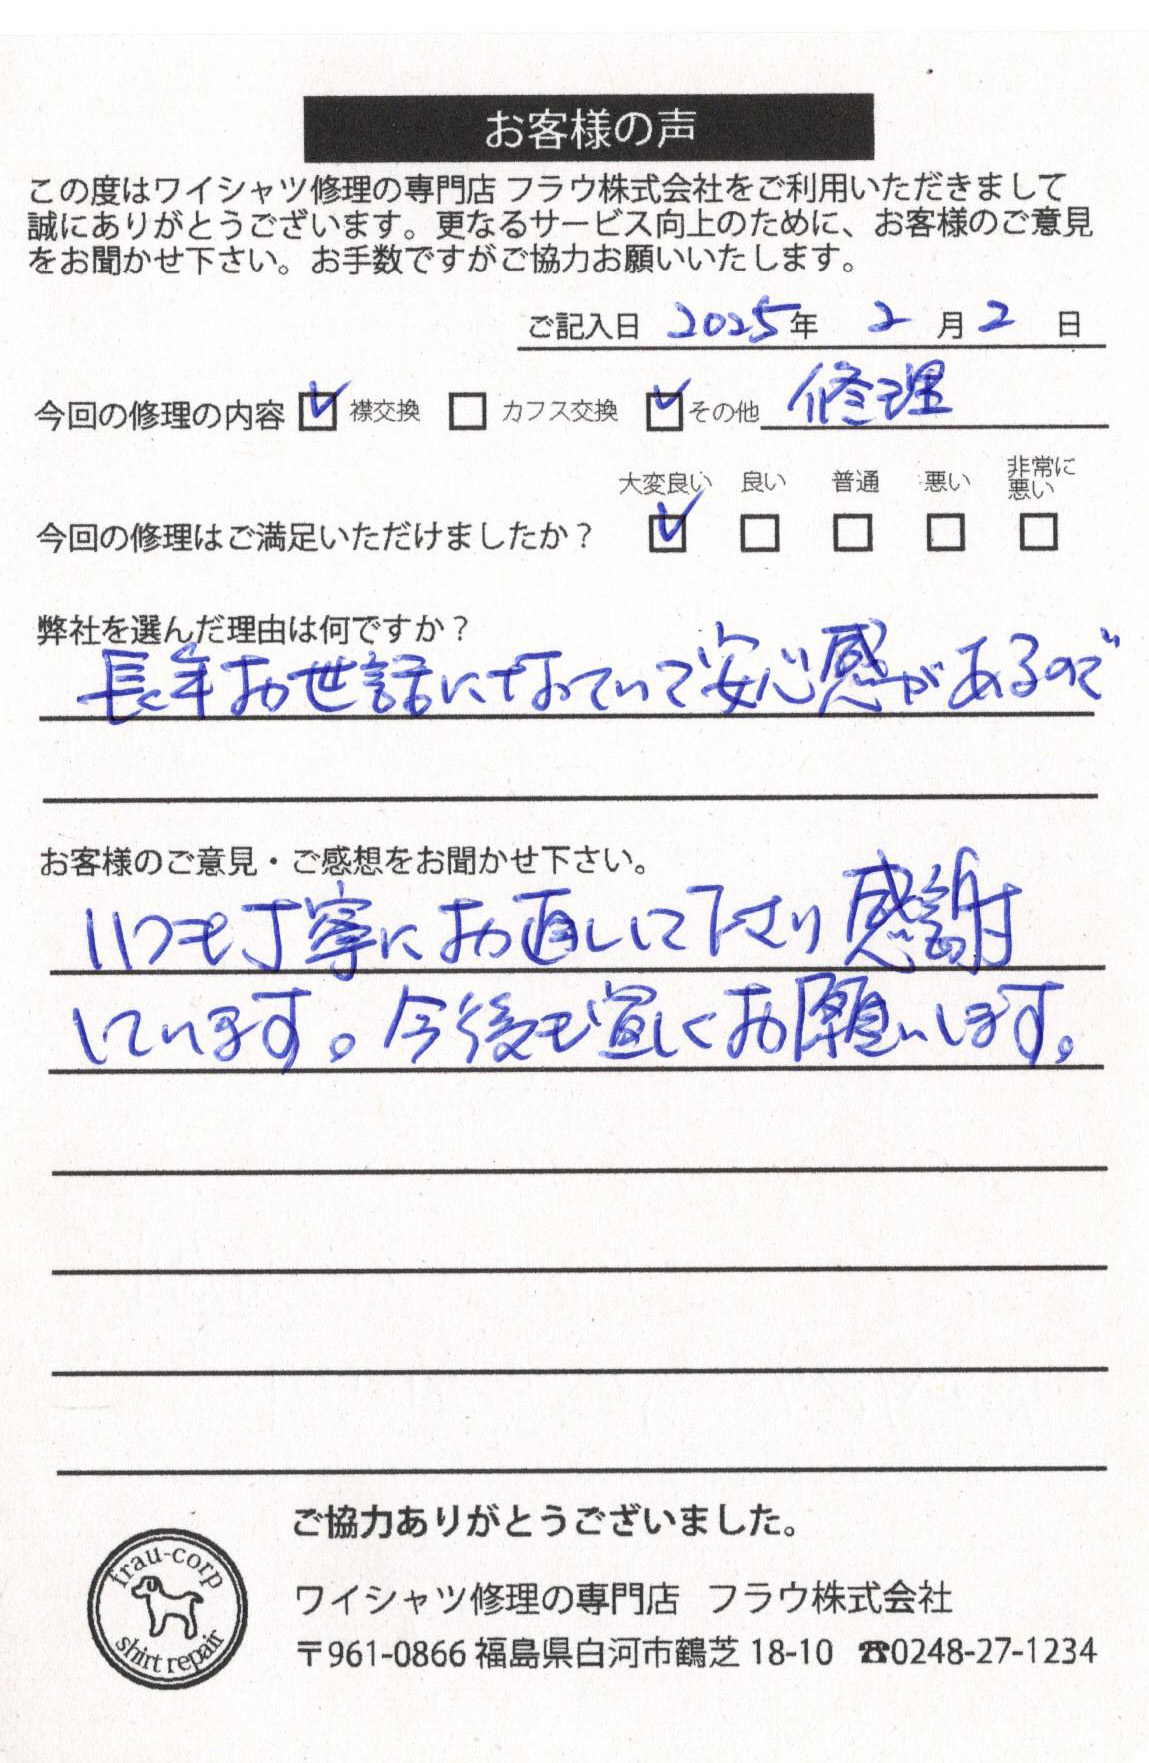 お客様の声
この度はワイシャツ修理の専門店 フラウ株式会社をご利用いただきまして
誠にありがとうございます。更なるサービス向上のために、お客様のご意見
をお聞かせ下さい。お手数ですがご協力お願いいたします。
ご記入日 2025年 2月2日
今回の修理の内容 ☑襟交換 □カフス交換 ☑その他 修理
大変良い 良い 普通 悪い 非常に悪い
今回の修理はご満足いただけましたか? ☑ □ □ □ □
弊社を選んだ理由は何ですか?
長年お世話になっていて安心感があるので
お客様のご意見・ご感想をお聞かせ下さい。
いつも丁寧にお直しして下さり感謝
しています。今後も宜しくお願いします。
ご協力ありがとうございました。
frau-corp
shirt repair
ワイシャツ修理の専門店 フラウ株式会社
〒961-0866 福島県白河市鶴芝 18-10 ☎0248-27-1234